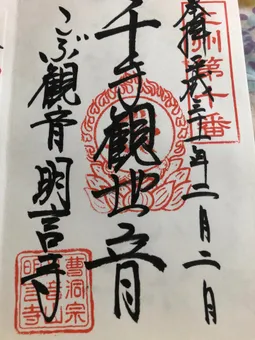 州第十番
奉拝 平成三十一年二月二日
千手観世音
こぶ観音 明言寺
曹洞宗
音山
明言寺